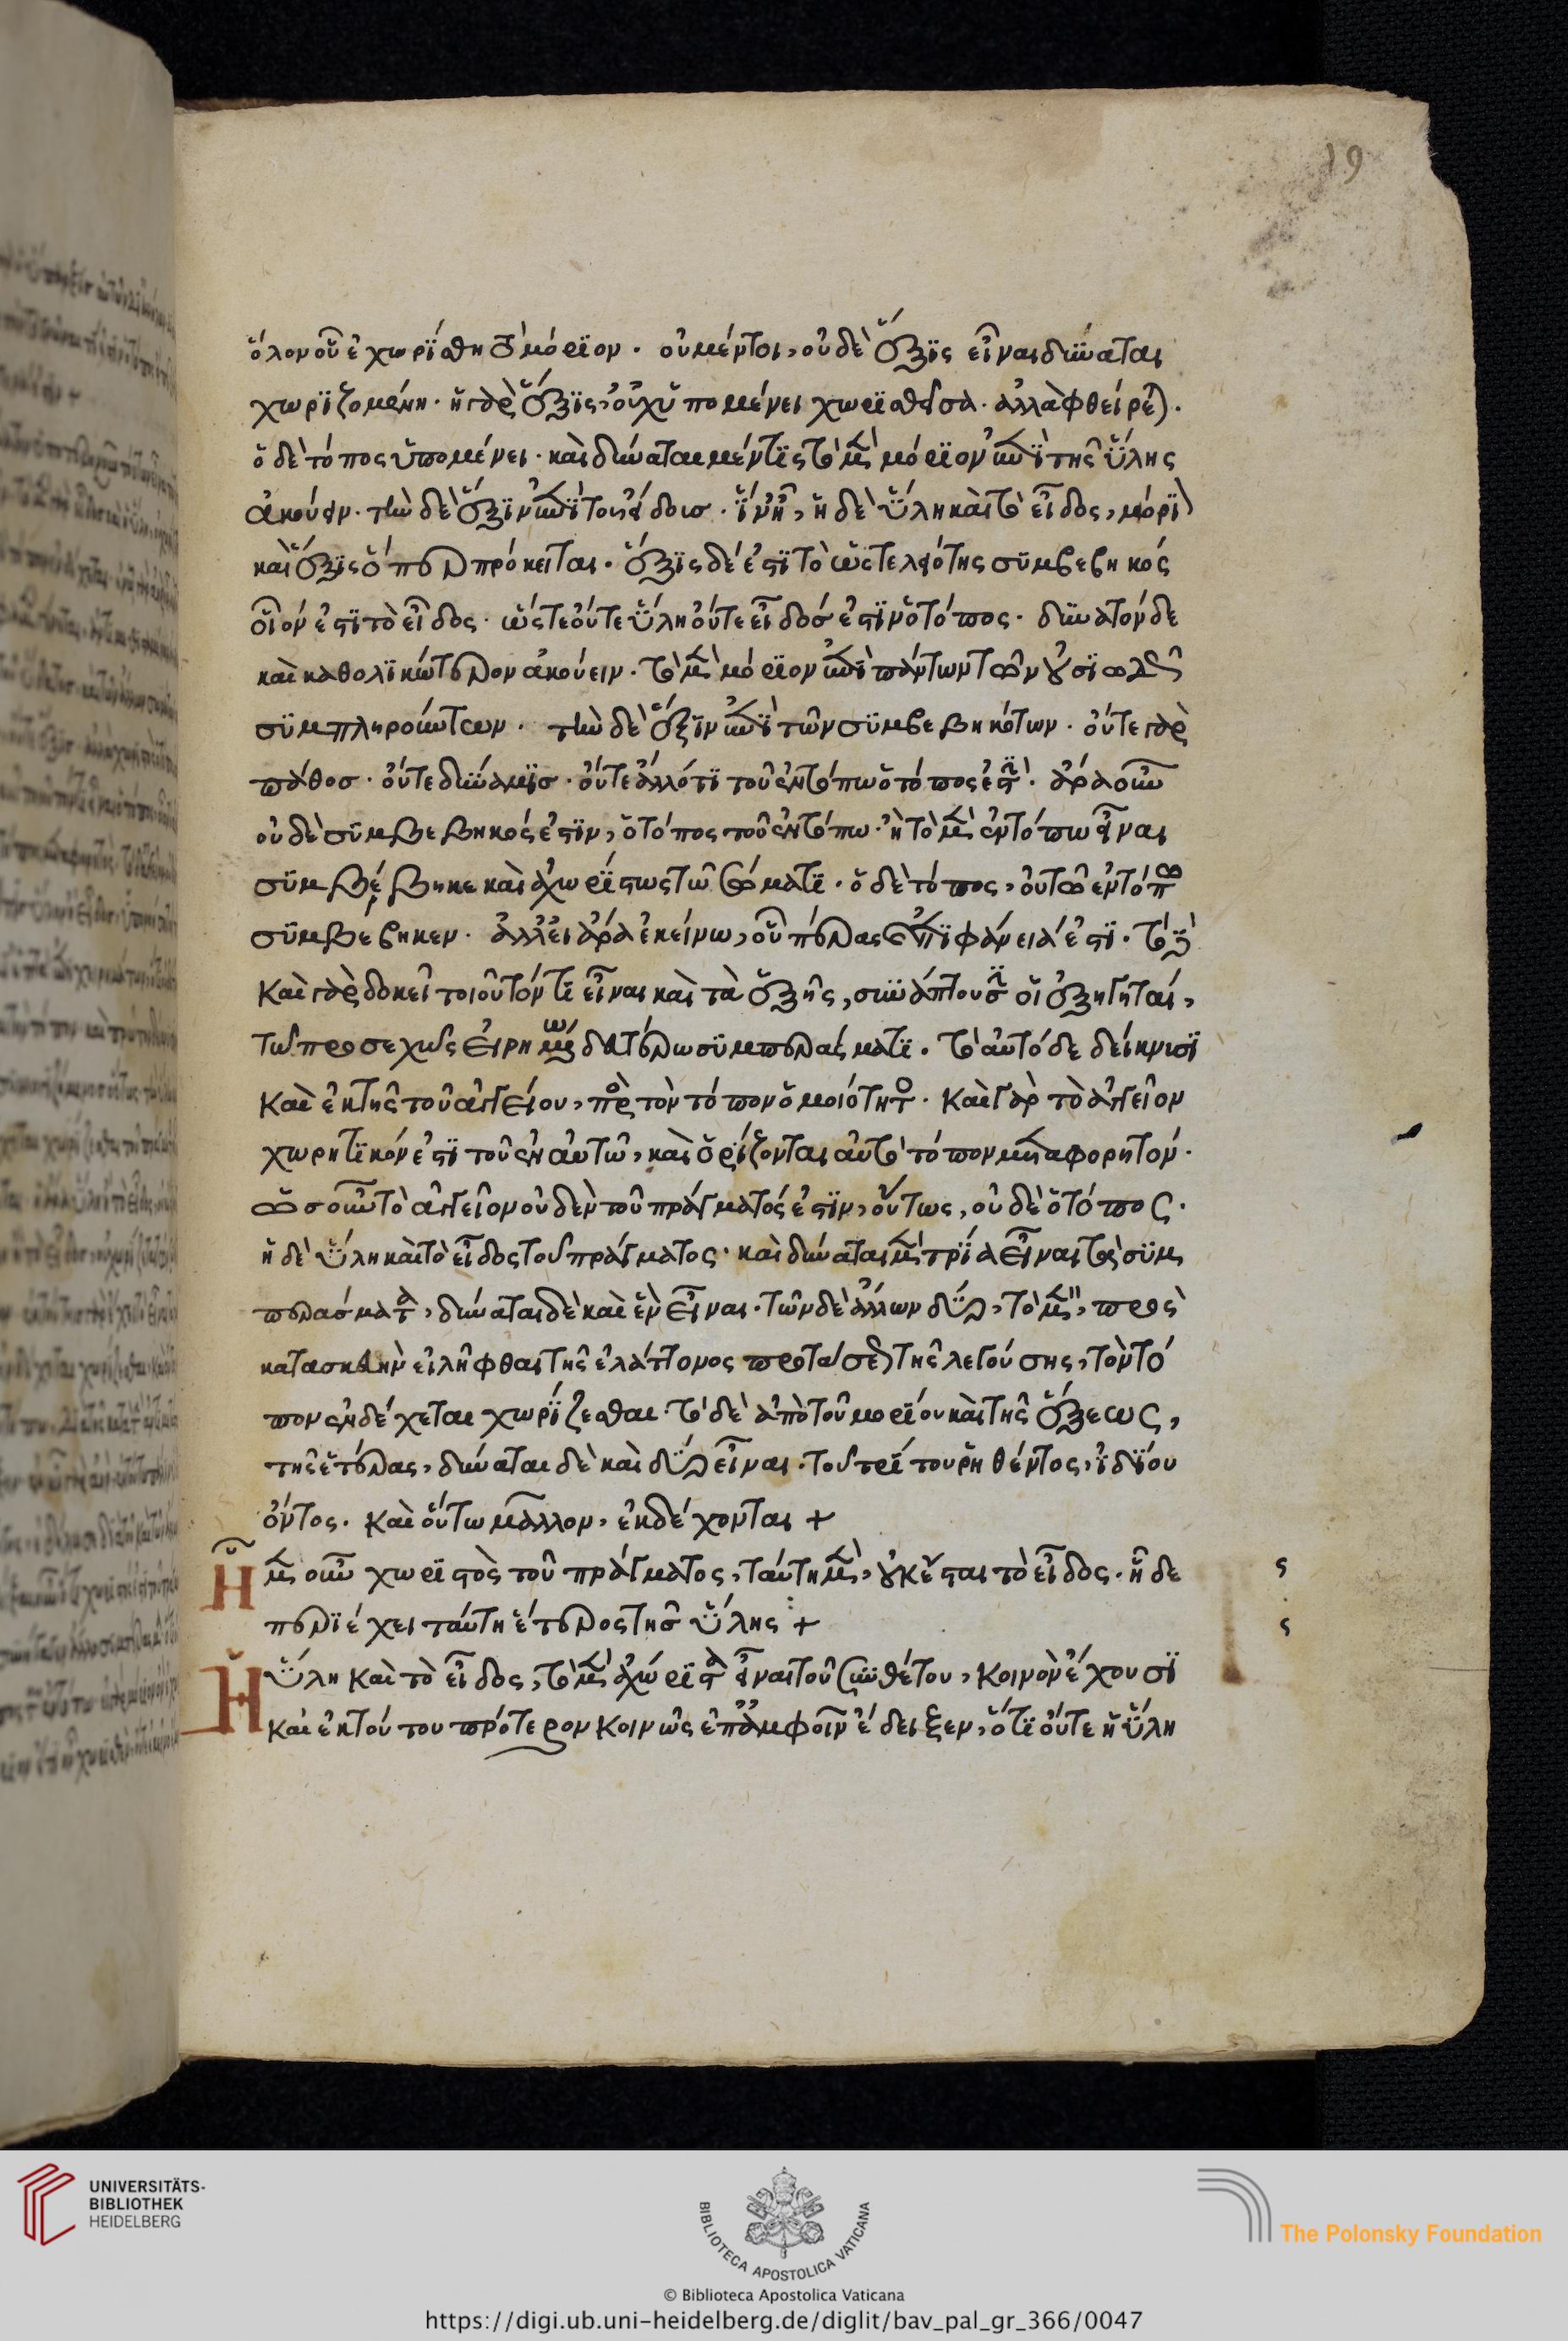 19
ὅλον οὗ ἐχωρίσθη τὸ μόριον · οὐ μέντοι, οὐδὲ ἕξις εἶναι δύναται
χωριζομένη · ἡ γὰρ ἕξις, οὐχ ὑπομένει χωρισθεῖσα · ἀλλὰ φθείρε ·
ὁ δὲ τόπος ὑπομένει · καὶ δύναται μέντις τὸ μὲν μόριον ἐπὶ τῆς ὕλης
ἀκούειν · τὴν δὲ ἕξιν ἐπὶ τοῦ εἴδους · ἵν ᾖ, ἡ δὲ ὕλη καὶ τὸ εἶδος, μόρι
καὶ ἕξις ὅπερ πρόκειται · ἕξις δέ ἐστι τὸ ὡς τελειότης συμβεβηκός
οἷον ἐστὶ τὸ εἶδος · ὥστε οὔτε ὕλη οὔτε εἶδός ἐστιν ὁ τόπος · δυνατὸν δὲ
καὶ καθολικώτερον ἀκούειν · τὸ μὲν μόριον ἐπὶ πάντων τῶν οὐσιωδῶς
συμπληρούντων · τὴν δὲ ἕξιν ἐπὶ τῶν συμβεβηκότων · οὔτε γὰρ
πάθος · οὔτε δύναμις · οὔτε ἄλλό τι τοῦ ἐν τόπω ὁ τόπος ἐστ · ἆρα οὖν
οὐδὲ συμβεβηκός ἐστιν, ὁ τόπος τοῦ ἐν τόπω · ἢ τὸ μὲν ἐν τόπω εἶναι
συμβέβηκε καὶ ἀχωρίστως τῶ σώματι · ὁ δὲ τόπος, οὐ τῶ ἐν τόπω
συμβέβηκεν · ἀλλ εἰ ἄρα ἐκείνω, οὗ πέρας ἐπιφάνειά ἐστι · τὸ ἑξ
καὶ γὰρ δοκεῖ τοιοῦτόν τι εἶναι καὶ τὰ ἑξῆς, συνάπτουσ οἱ ἐξηγηταί,
τοῦ προσεχῶς εἰρημένω δευτέρω συμπεράσματι · τὸ αὐτὸ δὲ δείκνυσι
καὶ ἐκ τῆς τοῦ ἀγγείου, πρὸς τὸν τόπον ὁμοιότητος · καὶ γὰρ τὸ ἀγγεῖον
χωρητικόν ἐστι τοῦ ἐν αὐτῶ, καὶ ὁρίζονται αὐτὸ τόπον μεταφορητόν ·
ὡς οὖν τὸ ἀγγεῖον οὐδὲν τοῦ πράγματός ἐστιν, οὕτως, οὐδὲ ὁ τόπος ·
ἡ δὲ ὕλη καὶ τὸ εἶδος τοῦ πράγματος · καὶ δύναται μὲν τρία εἶναι τὰ συμ
περάσματα, δύναται δὲ καὶ ἓν εἶναι · τῶν δὲ ἄλλων δύο, τὸ μὲν, πρὸς
κατασκευὴν εἰλῆφθαι τῆς ἐλάττονος προτάσεως τῆς λεγούσης, τὸν τό
πον ἐνδέχεται χωρίζεσθαι · τὸ δὲ ἀπὸ τοῦ μορίου καὶ τῆς ἕξεως,
τῆς ἑτέρας, δύναται δὲ καὶ δύο εἶναι · τοῦ τρίτου ῥηθέντος, ἰδίου
ὄντος · καὶ οὕτω μᾶλλον, ἐκδέχονται +
Ἧι μὲν οὖν χωριστὸς τοῦ πράγματος, ταύτη μὲν, οὐκ ἔσται τὸ εἶδος · ἧ δὲ ς
περιέχει ταύτη ἕτερος τῆς ὕλης + ς
Ἡ ὕλη καὶ τὸ εἶδος, τὸ μὲν ἀχώριστα εἶναι τοῦ συνθέτου, κοινὸν ἔχουσι
καὶ ἐκ τούτου πρότερον κοινῶς ἐπ ἀμφοῖν ἔδειξεν, ὅτι οὔτε ἡ ὕλη
UNIVERSITÄTS-
BIBLIOTHEK
HEIDELBERG
BIBLIOTECA APOSTOLICA VATICANA
The Polonsky Foundation
© Biblioteca Apostolica Vaticana
https://digi.ub.uni-heidelberg.de/diglit/bav_pal_gr_366/0047